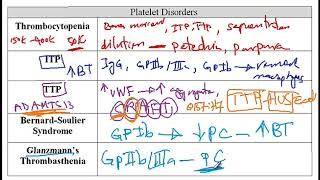 Platelet Disorders
Thrombocytopenia
Bone marrow, ITP, TTP, sequestration
150K - 400K 50K
dilution → petechia, purpura
ITP ↑BT
IgG, GPIb/IIIa, GPIb → removed
macrophages
TTP
↑ vWF →
O157:H7 TTP HUS
ADAMTS13
Bernard-Soulier
Syndrome
GPIb → ↓PC → ↑BT
Glanzmann's
Thrombasthenia
GPIIb/IIIa →